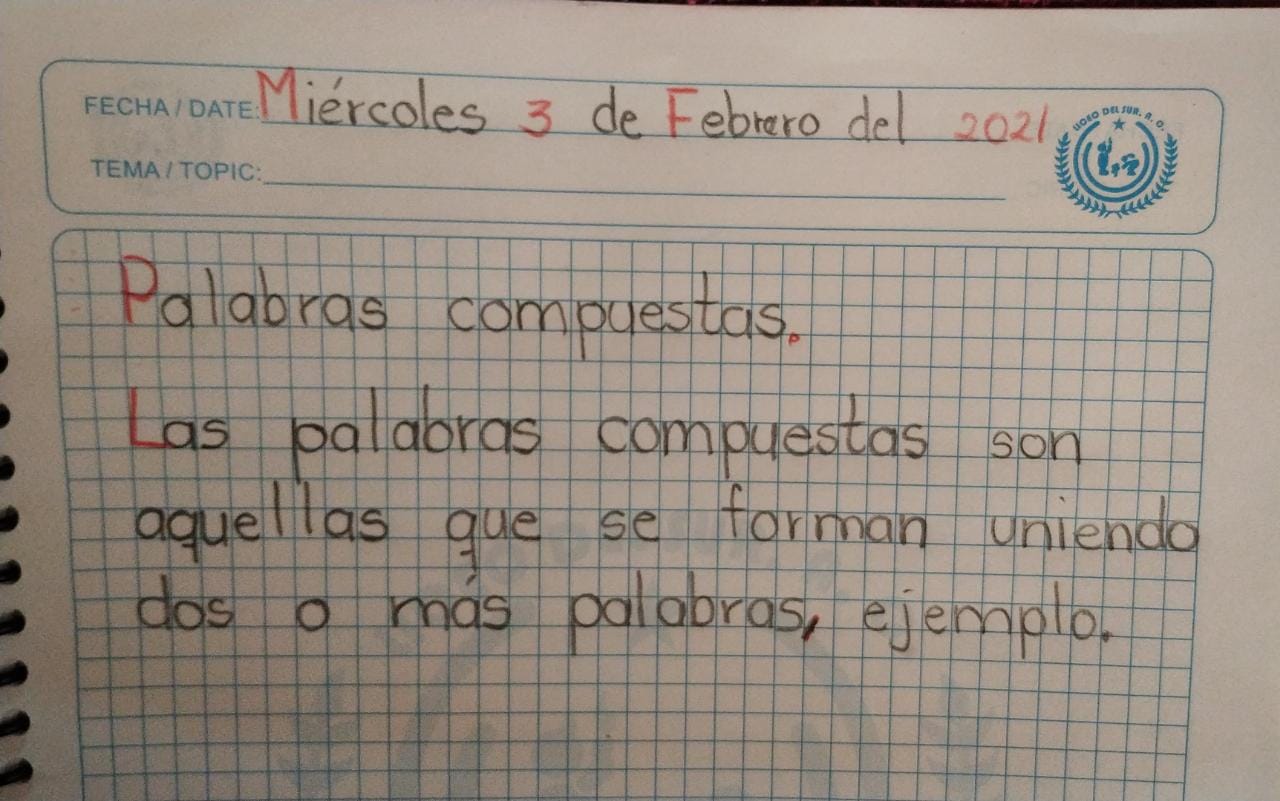 FECHA / DATE: Miércoles 3 de Febrero del 2021
TEMA / TOPIC:
LICEO DEL SUR. A. O.
Palabras compuestas.
Las palabras compuestas son
aquellas que se forman uniendo
dos o más palabras, ejemplo.